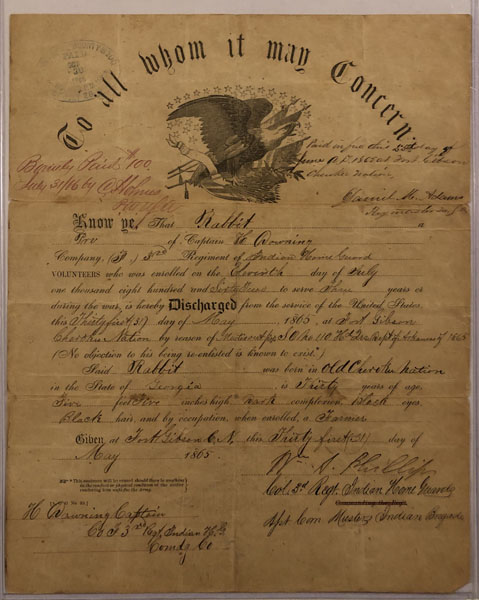 To all whom it may Concern.
Paid in full this 25th day of
June A.D. 1865 at Fort Gibson
Cherokee Nation
Daniel M. Adams
Paymaster
Bounty Paid $100.
July 31/66 by
Know ye, That Rabbit a
Priv of Captain H Downing
Company, (F) 3rd Regiment of Indian Home Guard
VOLUNTEERS who was enrolled on the day of July
one thousand eight hundred and Sixty to serve Three years or
during the war, is hereby Discharged from the service of the United States,
this Thirty first (31) day of May, 1865, at Fort Gibson
Cherokee Nation by reason of 1865
(No objection to his being re-enlisted is known to exist.)
Said Rabbit was born in Old Cherokee Nation
in the State of Georgia, is Thirty years of age,
Five feet Five inches high, Dark complexion, Black eyes,
Black hair, and by occupation, when enrolled, a Farmer
Given at Fort Gibson C. N. this Thirty first (31) day of
May 1865.
Wm A. Phillips
Col. 3d Regt. Indian Home Guards
Commanding the Regt.
Indian Brigade
H Downing Captain
Co F 3rd Regt Indian H. G.
Comdg Co